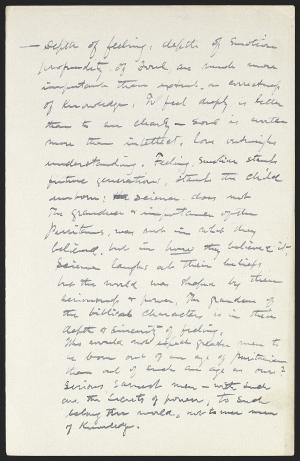 — Depth of feeling, depth of emotion
profundity of soul are much more
important than extent or correctness
of knowledge. To feel deeply is better
than to see clearly — Soul is written
more than intellect, love outweighs
understanding. Feeling, emotion stands
future generation, stands the child
unborn; science does not
The grandeur & importance of the
Puritans, was not in what they
believed, but in how they believed it,
Science laughs at their beliefs
but the world was shaped by their
seriousness & power, The grandeur of
the biblical characters is in their
depth & sincerity of feeling.
Who would not expect greater men to
be born out of an age of Puritanism
than out of such an age as ours?
Serious earnest men — with such
are the secrets of power, to such
belong this world, not to mere men
of Knowledge.